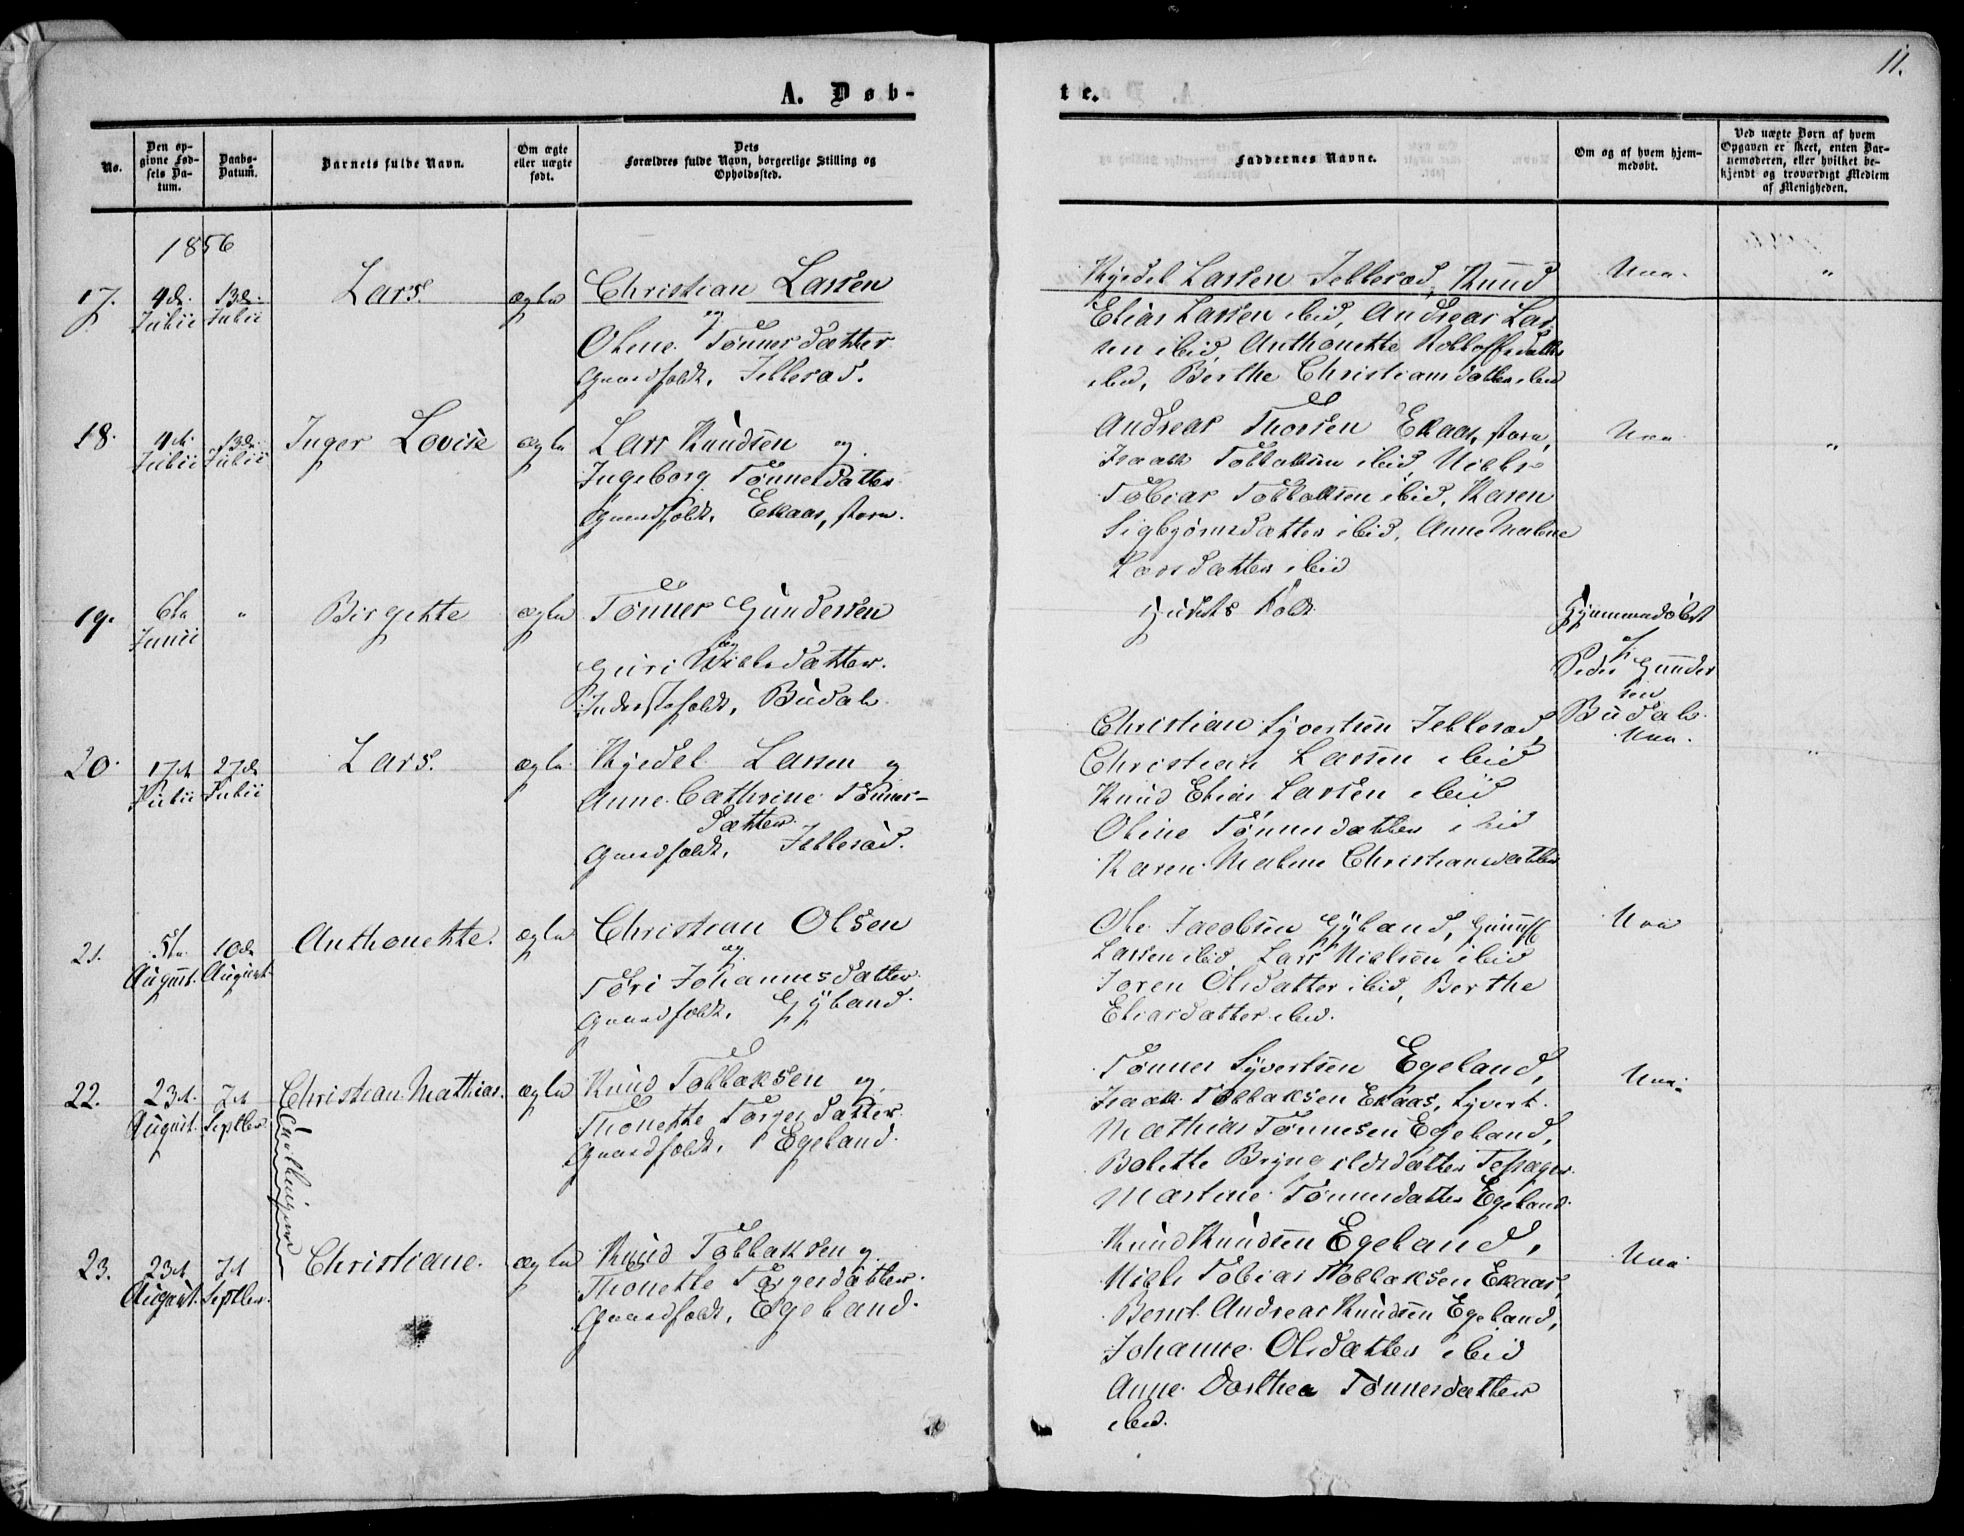 11.
A. Døb-
te.
No.
Den op-
givne Fød-
sels Da-
tum.
Daabs-
Datum.
Barnets fulde Navn.
Om ægte
eller uægte
født.
Dets
Forældres fulde Navn, borgerlige Stilling og
Opholdssted.
Faddernes Navne.
Om og af hvem hjem-
medøbt.
Ved uægte Børn af hvem
Opgaven er skeet, enten Bar-
nemoderen, eller hvilket be-
kjendt og troværdigt Medlem
af Menigheden.
1856
17.
4de
Julii
13de
Julii
Lars.
ægte
Christian Larsen
og
Oline Tønnesdatter
Gaardfolk, Jelleraad.
Kjedel Larsen Jelleraad, Knud
Elias Larsen ibid, Andreas Lar-
sen ibid, Anthonette
ibid, Berthe Christiansdatter ibid
Nei.
"
18.
4de
Julii
13de
Julii
Inger Lovise
ægte
Lars Knudsen og
Ingeborg Tønnesdatter
Gaardfolk, Ekaas, store.
Andreas Thorsen Ekaas, store,
Isaak Tollaksen ibid, Niels
Tobias Tollaksen ibid, Karen
Sigbjørnsdatter ibid, Anne Malene
Larsdatter ibid
Nei
"
19.
6te
Junii
"
Birgitte
ægte
Tønnes Gundersen
og
Guri Nielsdatter.
Inderstefolk, Budal.
Hjemmedøbt
af
Peder Gunder
sen
Budal.
20.
17de
Julii
27de
Julii
Lars.
ægte
Kjedel Larsen og
Anne Cathrine Tønnes-
datter.
Gaardfolk, Jelleraad.
Christian Syvertsen Jelleraad,
Christian Larsen ibid
Knud Elias Larsen ibid
Oline Tønnesdatter ibid
Karen Malene Christiansdatter
Nei.
"
21.
5te
August.
10de
August.
Anthonette.
ægte
Christian Olsen
og
Tori Johannesdatter
Gaardfolk, Gyland.
Ole Jacobsen Gyland,
Larsen ibid, Lars Nielsen ibid
Joren Olsdatter ibid, Berthe
Eliasdatter ibid.
Nei
22.
23de
August.
7de
Septber
Christian Mathias.
Tvillinger
ægte
Knud Tollaksen og
Thonette Torgersdatter
Gaardfolk, Egeland.
Tønnes Syvertsen Egeland,
Isaak Tollaksen Ekaas, Syvert
Mathias Tønnesen Egeland,
Bolette
Martine Tønnesdatter Egeland.
Nei
23.
23de
August.
7de
Septber.
Christiane.
ægte
Knud Tollaksen og
Thonette Torgersdatter
Gaardfolk, Egeland.
Knud Knudsen Egeland,
Niels Tobias Tollaksen Ekaas,
Bernt Andreas Knudsen Egeland,
Johanne Olsdatter ibid
Anne Dorthea Tønnesdatter
ibid.
Nei